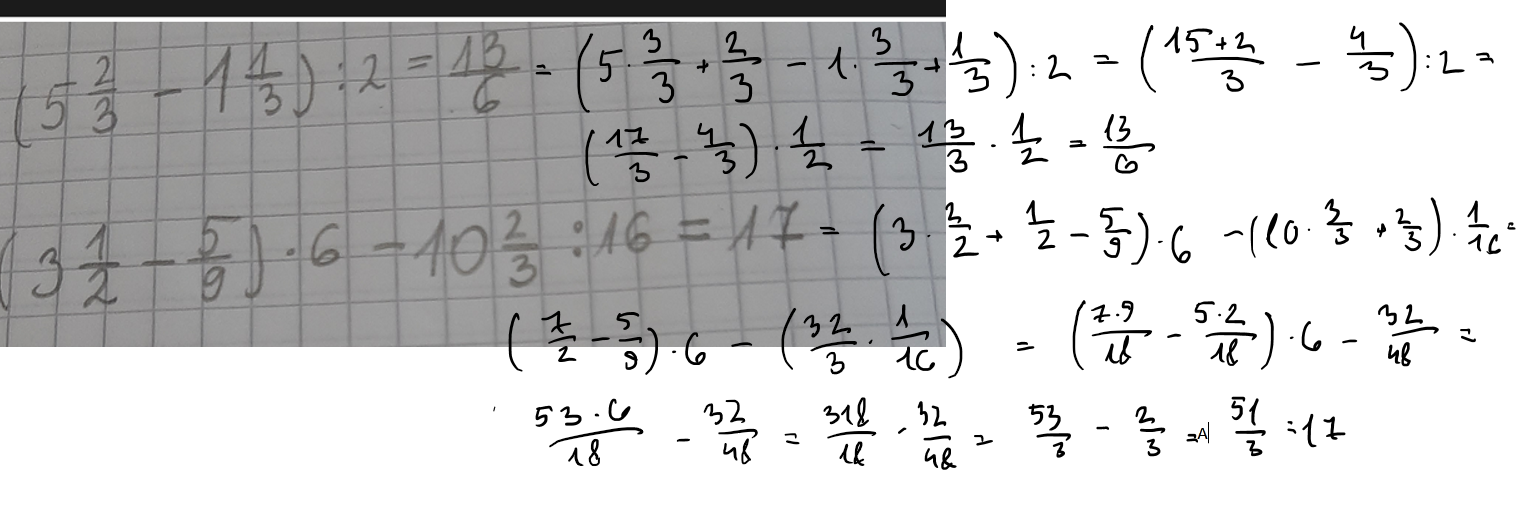 (5 2/3 - 1 1/3) : 2 = 13/6 = (5 · 3/3 + 2/3 - 1 · 3/3 + 1/3) : 2 = (15+2/3 - 4/3) : 2 =
(17/3 - 4/3) · 1/2 = 13/3 · 1/2 = 13/6
(3 1/2 - 5/9) · 6 - 10 2/3 : 16 = 17 = (3 · 2/2 + 1/2 - 5/9) · 6 - (10 · 3/3 + 2/3) · 1/16 =
(7/2 - 5/9) · 6 - (32/3 · 1/16) = (7·9/18 - 5·2/18) · 6 - 32/48 =
53·6/18 - 32/48 = 318/18 - 32/48 = 53/3 - 2/3 = A 51/3 = 17